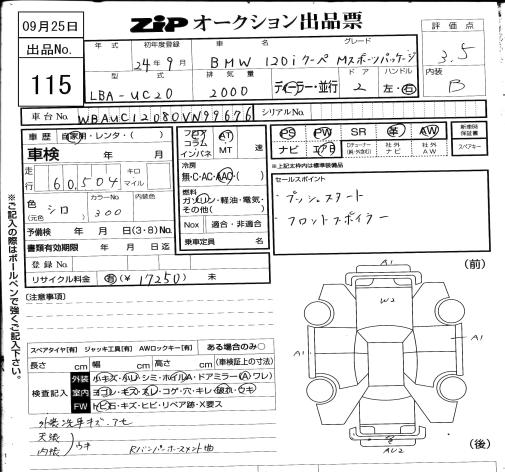 09月25日
ZIP オークション出品票
出品No.
115
年式
初年度登録
車名
グレード
評価点
24年9月
BMW 120iクーペ Mスポーツパッケージ
3.5
型式
排気量
ドア
ハンドル
内装
LBA-UC20
2000
ディーラー・並行
2
左・右
B
車台No.
WBAUC12080VN99676
シリアルNo.
車歴
自家用・レンタ・( )
車検 年 月
走行
60,504
キロ
マイル
色(元色)
シロ
カラーNo.
300
内装色
予備検 年 月 日(3・8)No.
書類有効期限 年 月 日迄
登録No.
リサイクル料金
有(¥ 17250) 未
フロア
コラム
インパネ
AT
MT
速
冷房
無・C・AC・AAC・( )
燃料
ガソリン・軽油・電気・
その他( )
Nox
適合・非適合
乗車定員 名
PS
PW
SR
革
AW
ナビ
エアB
社外ナビ
社外AW
新車時保証書
スペアキー
※上記太枠内は標準装備品
セールスポイント
・プッシュスタート
・フロントスポイラー
(注意事項)
スペアタイヤ[有] ジャッキ工具[有] AWロックキー[有] ある場合のみ○
長さ cm 幅 cm 高さ cm (車検証上の寸法)
検査記入
外装
小キズ・小凹・シミ・ホイルA・ドアミラー(A)ワレ)
室内
ヨゴレ・キズ・スレ・コゲ・穴・キレ・破れ・ウキ
FW
トビ石・キズ・ヒビ・リペア跡・X要ス
外装洗車キズ.アセ
天張
内張
ウキ
Rバンパーホースメント曲
※ご記入の際はボールペンで強くご記入下さい。
(前)
A1
W2
A1
A1
AU2
(後)